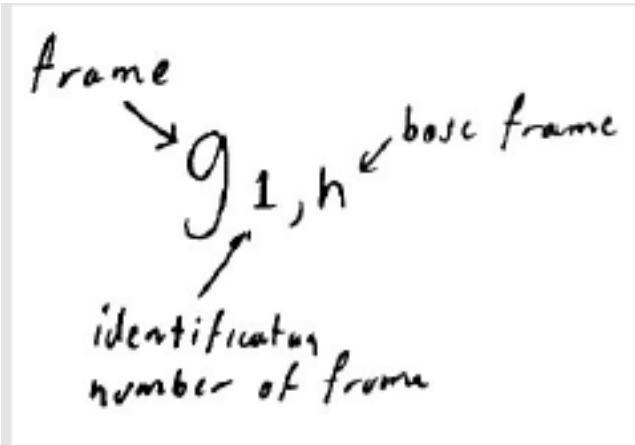 frame
base frame
g 1, h
identification
number of frame